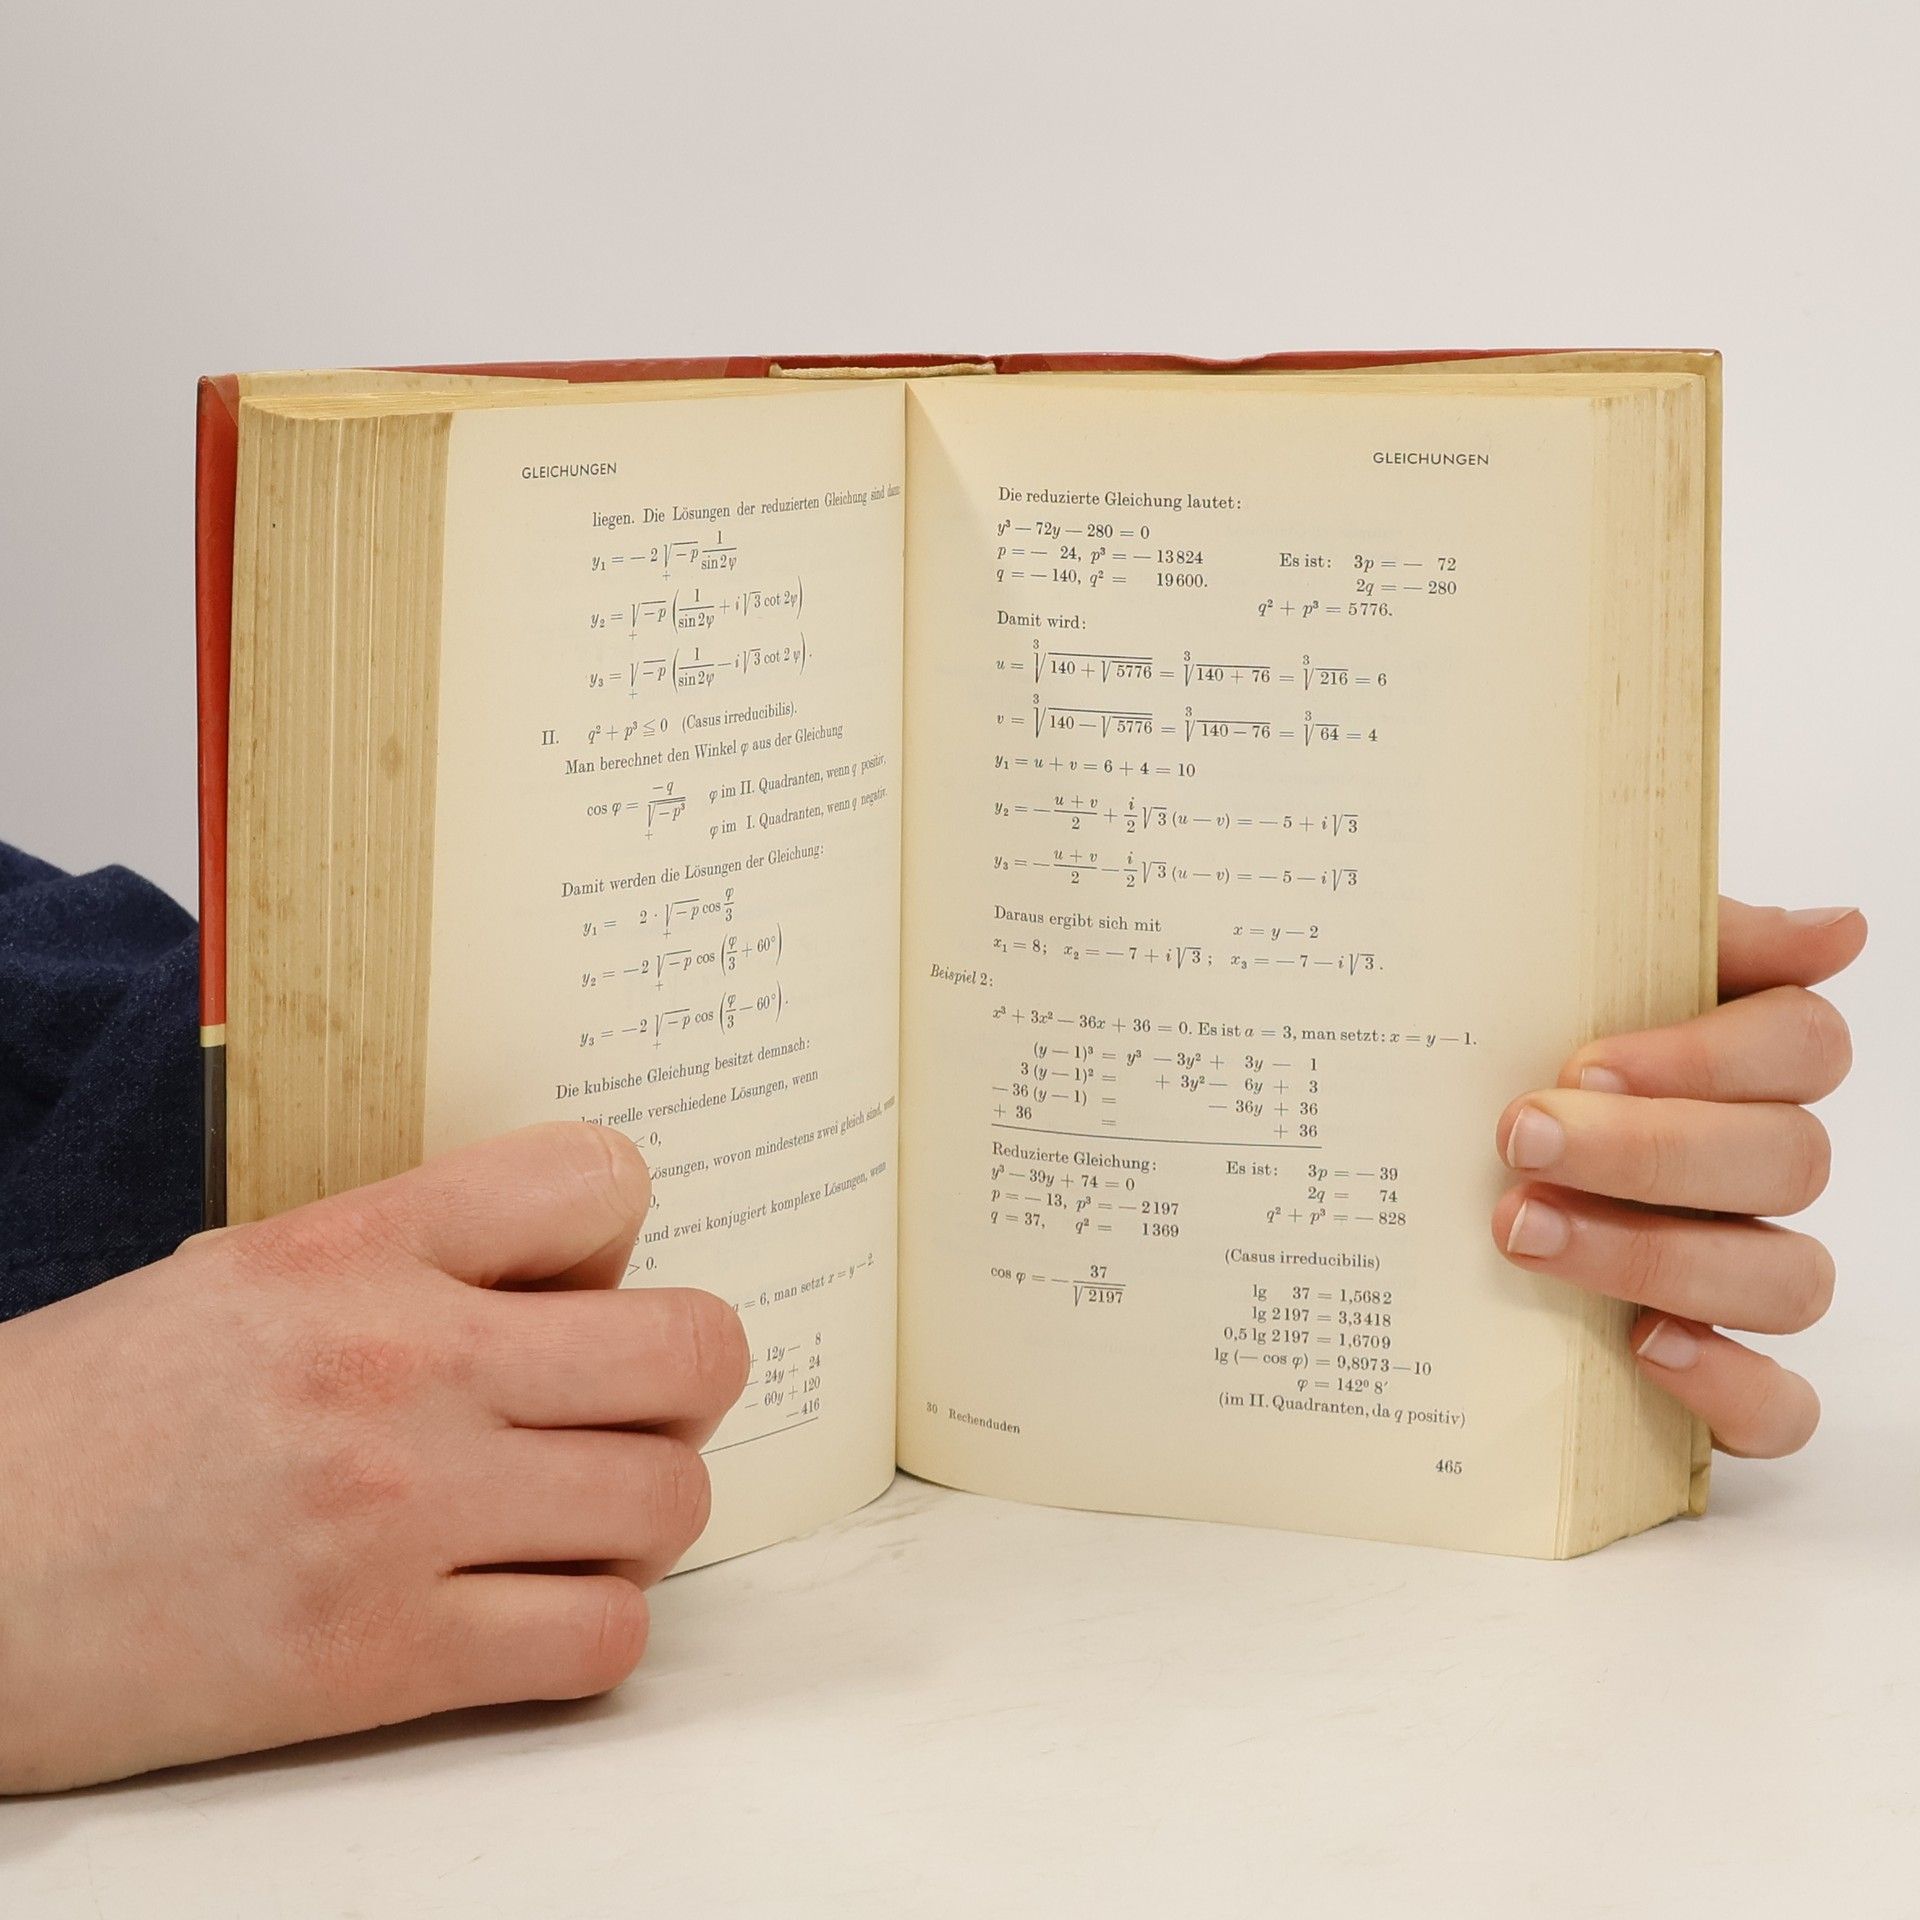 GLEICHUNGEN
liegen. Die Lösungen der reduzierten Gleichung sind dann:
y₁ = − 2 √−p 1/sin 2φ
+
y₂ = √−p (1/sin 2φ + i √3 cot 2φ)
+
y₃ = √−p (1/sin 2φ − i √3 cot 2φ).
+
II. q² + p³ ≦ 0 (Casus irreducibilis).
Man berechnet den Winkel φ aus der Gleichung
cos φ = −q/√−p³ φ im II. Quadranten, wenn q positiv,
+
φ im I. Quadranten, wenn q negativ.
Damit werden die Lösungen der Gleichung:
y₁ = 2 · √−p cos φ/3
+
y₂ = −2 √−p cos (φ/3 + 60°)
+
y₃ = −2 √−p cos (φ/3 − 60°).
+
Die kubische Gleichung besitzt demnach:
reelle verschiedene Lösungen, wenn
< 0,
Lösungen, wovon mindestens zwei gleich sind, wenn
0,
und zwei konjugiert komplexe Lösungen, wenn
> 0.
a = 6, man setzt x = y − 2
+ 12y − 8
− 24y + 24
− 60y + 120
− 416
GLEICHUNGEN
Die reduzierte Gleichung lautet:
y³ − 72y − 280 = 0
p = − 24, p³ = − 13824 Es ist: 3p = − 72
q = − 140, q² = 19600. 2q = − 280
q² + p³ = 5776.
Damit wird:
u = ³√140 + √5776 = ³√140 + 76 = ³√216 = 6
v = ³√140 − √5776 = ³√140 − 76 = ³√64 = 4
y₁ = u + v = 6 + 4 = 10
y₂ = − u + v/2 + i/2 √3 (u − v) = − 5 + i √3
y₃ = − u + v/2 − i/2 √3 (u − v) = − 5 − i √3
Daraus ergibt sich mit x = y − 2
x₁ = 8; x₂ = − 7 + i √3; x₃ = − 7 − i √3.
Beispiel 2:
x³ + 3x² − 36x + 36 = 0. Es ist a = 3, man setzt: x = y − 1.
(y − 1)³ = y³ − 3y² + 3y − 1
3 (y − 1)² = + 3y² − 6y + 3
− 36 (y − 1) = − 36y + 36
+ 36 = + 36
Reduzierte Gleichung: Es ist: 3p = − 39
y³ − 39y + 74 = 0 2q = 74
p = − 13, p³ = − 2197 q² + p³ = − 828
q = 37, q² = 1369
(Casus irreducibilis)
cos φ = − 37/√2197 lg 37 = 1,5682
lg 2197 = 3,3418
0,5 lg 2197 = 1,6709
lg (− cos φ) = 9,8973 − 10
φ = 142° 8′
(im II. Quadranten, da q positiv)
30 Rechenduden
465